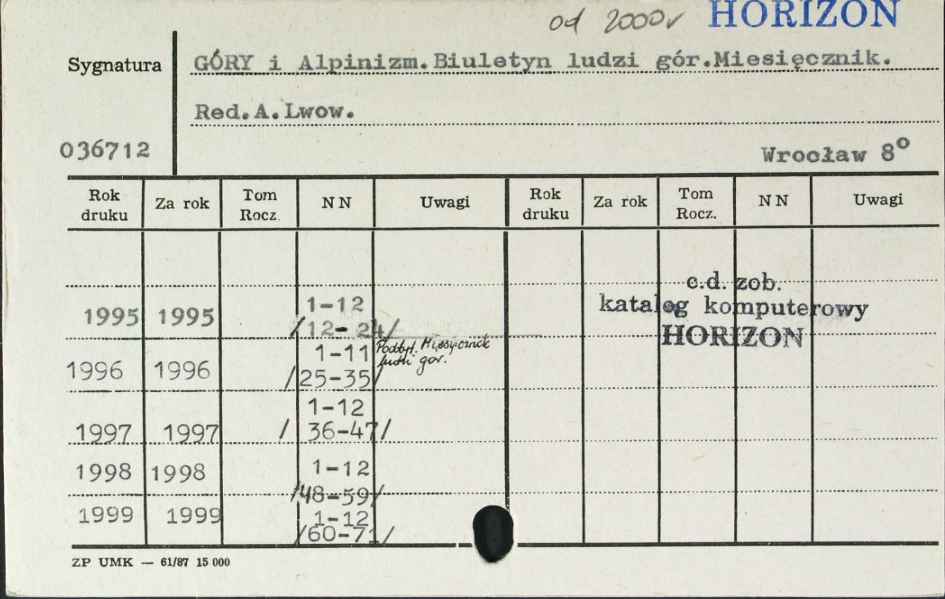 od 2000r HORIZON
Sygnatura
GÓRY i Alpinizm.Biuletyn ludzi gór.Miesięcznik.
Red.A.Lwow.
036712
Wrocław 8°
Rok druku Za rok Tom Rocz. NN Uwagi Rok druku Za rok Tom Rocz. NN Uwagi
c.d. zob.
katalog komputerowy
HORIZON
1995 1995 1-12
/12-24/
1996 1996 1-11 Podtyt. Miesięcznik
ludzi gór.
/25-35/
1-12
1997 1997 / 36-47/
1998 1998 1-12
/48-59/
1999 1999 1-12
/60-71/
ZP UMK — 61/87 15 000